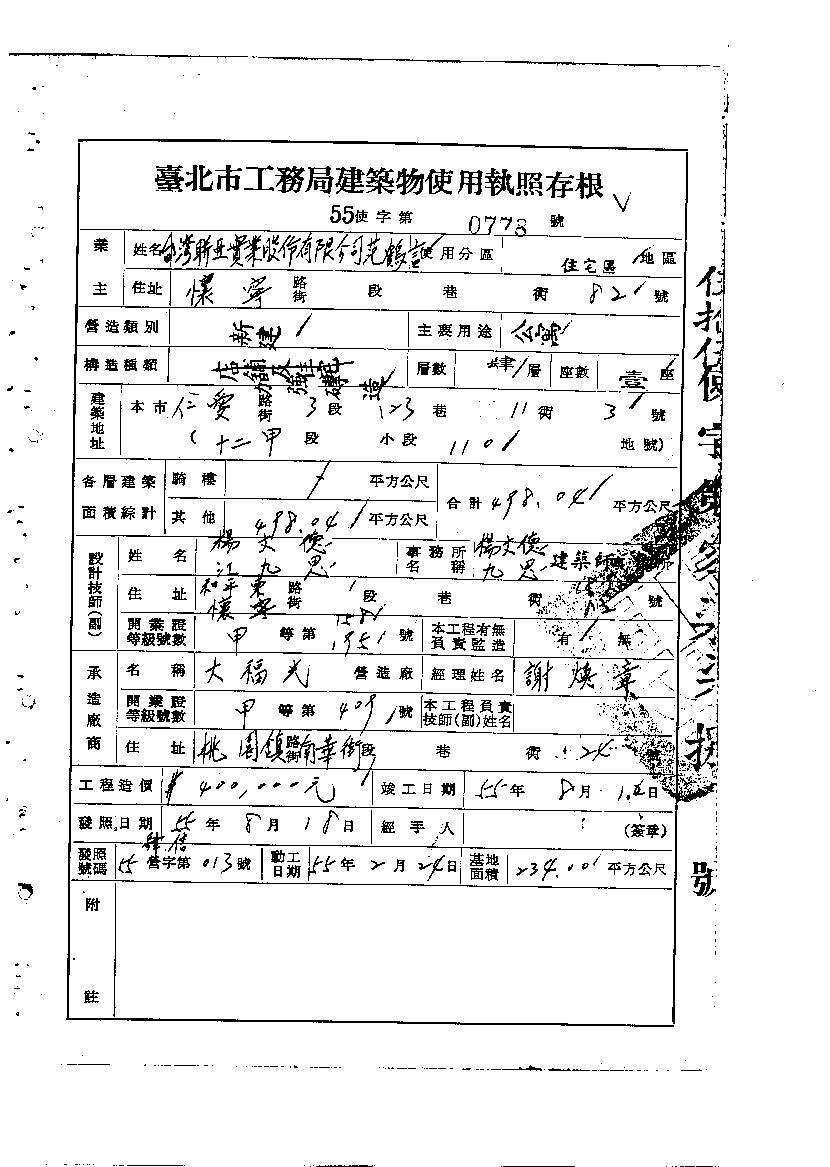 臺北市工務局建築物使用執照存根
55使字第 0773 號
業主 姓名 台灣聯亞實業股份有限公司范鶴言 使用分區 住宅區 地區
住址 懷寧 路街 段 巷 街 82 號
營造類別 新建 主要用途
構造種類 店舖及住宅 加強磚造 層數 肆 層 座數 壹 座
建築地址 本市 仁愛 路街 3 段 123 巷 11 街 3 號
(十二甲 段 小段 1101 地號)
各層建築面積綜計 騎樓 平方公尺 合計 498.04 平方公尺
其他 498.04 平方公尺
設計技師(副) 姓名 楊文德 江九思 事務所名稱 楊文德 九思 建築師
住址 和平東 懷寧 路街 段 巷 街 號
開業證等級號數 甲 等第 1951 號 本工程有無負責監造 有 無
承造廠商 名稱 大福光 營造廠 經理姓名 謝煥章
開業證等級號數 甲 等第 409 號 本工程負責技師(副)姓名
住址 桃園鎮 路街 南華街 段 巷 街 24
工程造價 $400,000元 竣工日期 55年 8月 日
發照日期 55年 8月 18日 經手人 (簽章)
發照號碼 55 營字第 013 號 動工日期 55年 2月 24日 基地面積 234.00 平方公尺
附註
伍拾伍使字第
號